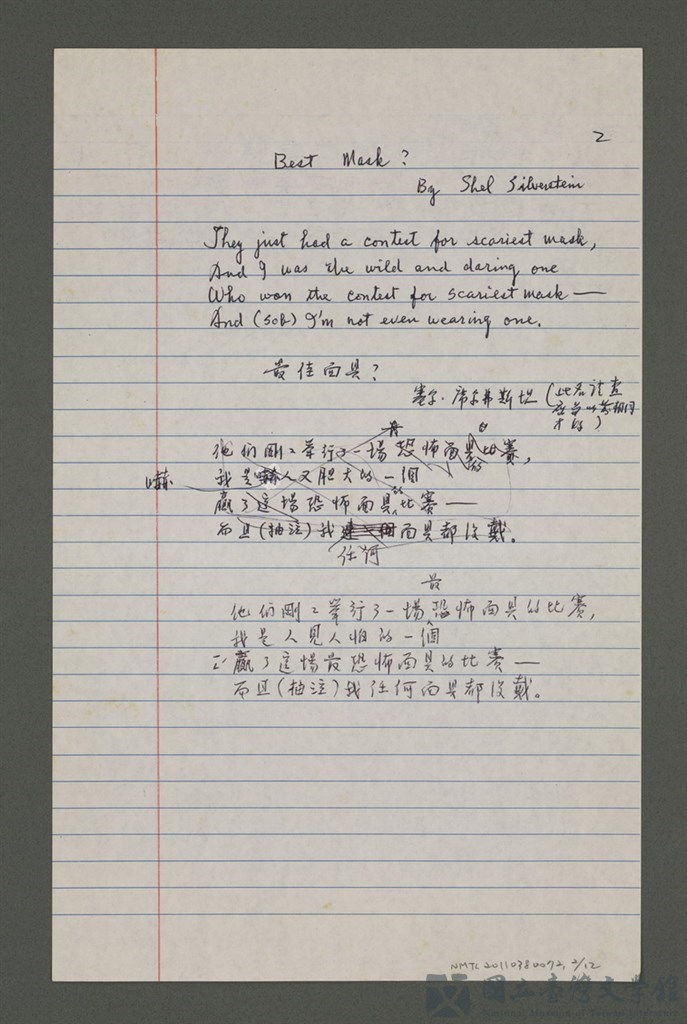 2
Best Mask?
By Shel Silverstein
They just had a contest for scariest mask,
And I was the wild and daring one
Who won the contest for scariest mask —
And (sob) I'm not even wearing one.
最佳面具?
塞尔·席尔弗斯坦 (此名請查
相同
才好)
他们剛々举行了一場恐怖面具比賽,
嚇 我是嚇人又胆大的一個
贏了這場恐怖面具的比賽——
而且(抽泣)我 面具都没戴。
任何
最
他们剛々举行了一場恐怖面具的比賽,
我是人見人怕的一個
贏了這場最恐怖面具的比賽——
而且(抽泣)我任何面具都没戴。
NMTL 20110380092, 2/12
國立臺灣文學館
National Museum of Taiwan Literature